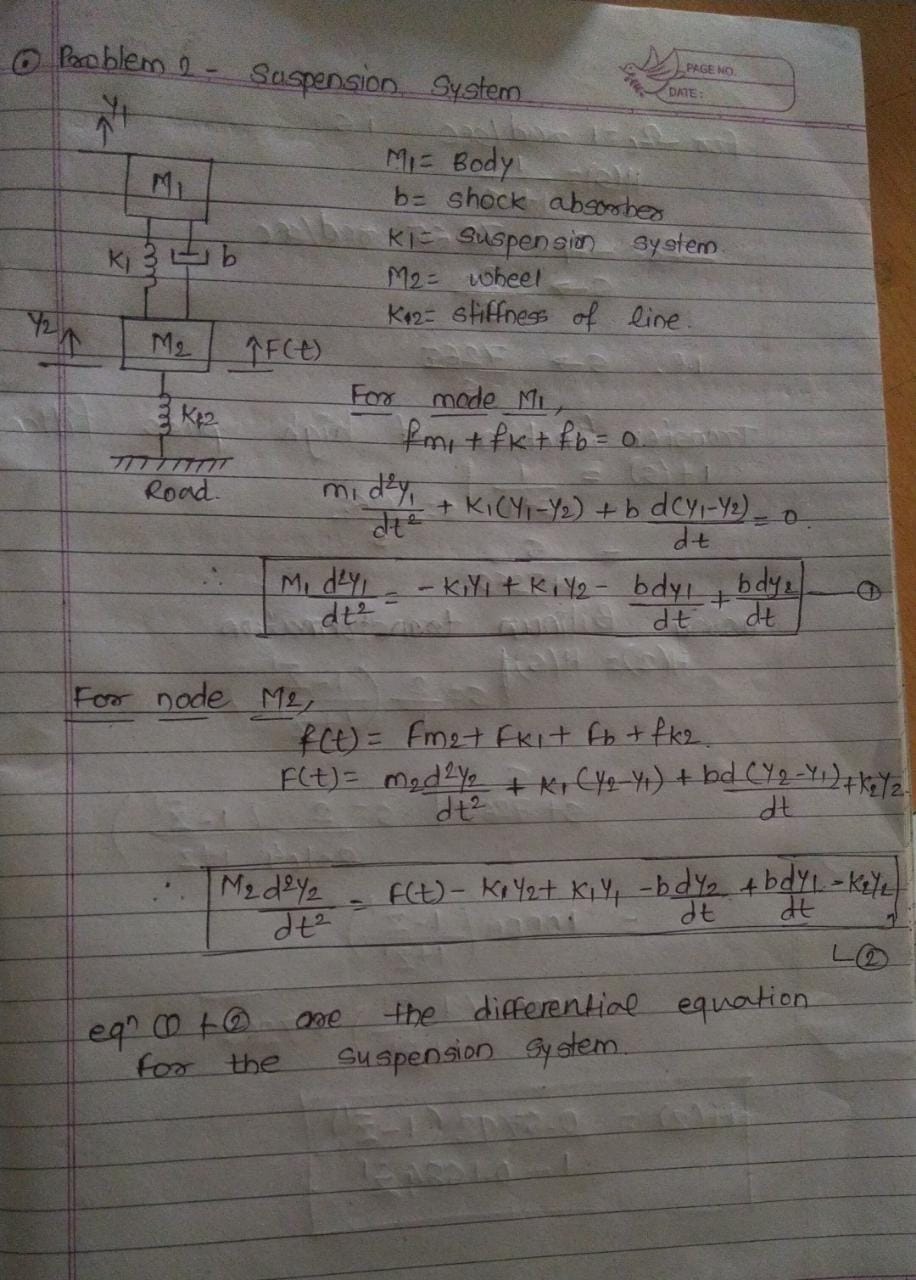 Problem 2 - Suspension System
PAGE NO.
DATE:
Y1
M1
K1
b
Y2
M2
F(t)
Kt2
Road.
M1 = Body
b = shock absorber
K1 = Suspension system.
M2 = wheel
Kt2 = stiffness of line.
For mode M1,
fm1 + fK + fb = 0.
m1 d²y1/dt² + K1(Y1-Y2) + b d(Y1-Y2)/dt = 0.
∴ M1 d²y1/dt² = - K1Y1 + K1Y2 - bdy1/dt + bdy2/dt — ①
For node M2,
f(t) = Fm2 + FK1 + Fb + fk2.
F(t) = m2d²Y2/dt² + K1(Y2-Y1) + bd(Y2-Y1)/dt + K2Y2.
∴ M2d²Y2/dt² = F(t) - K1Y2 + K1Y1 - bdY2/dt + bdY1/dt - K2Y2
②
eqn ① + ② are the differential equation
for the suspension system.